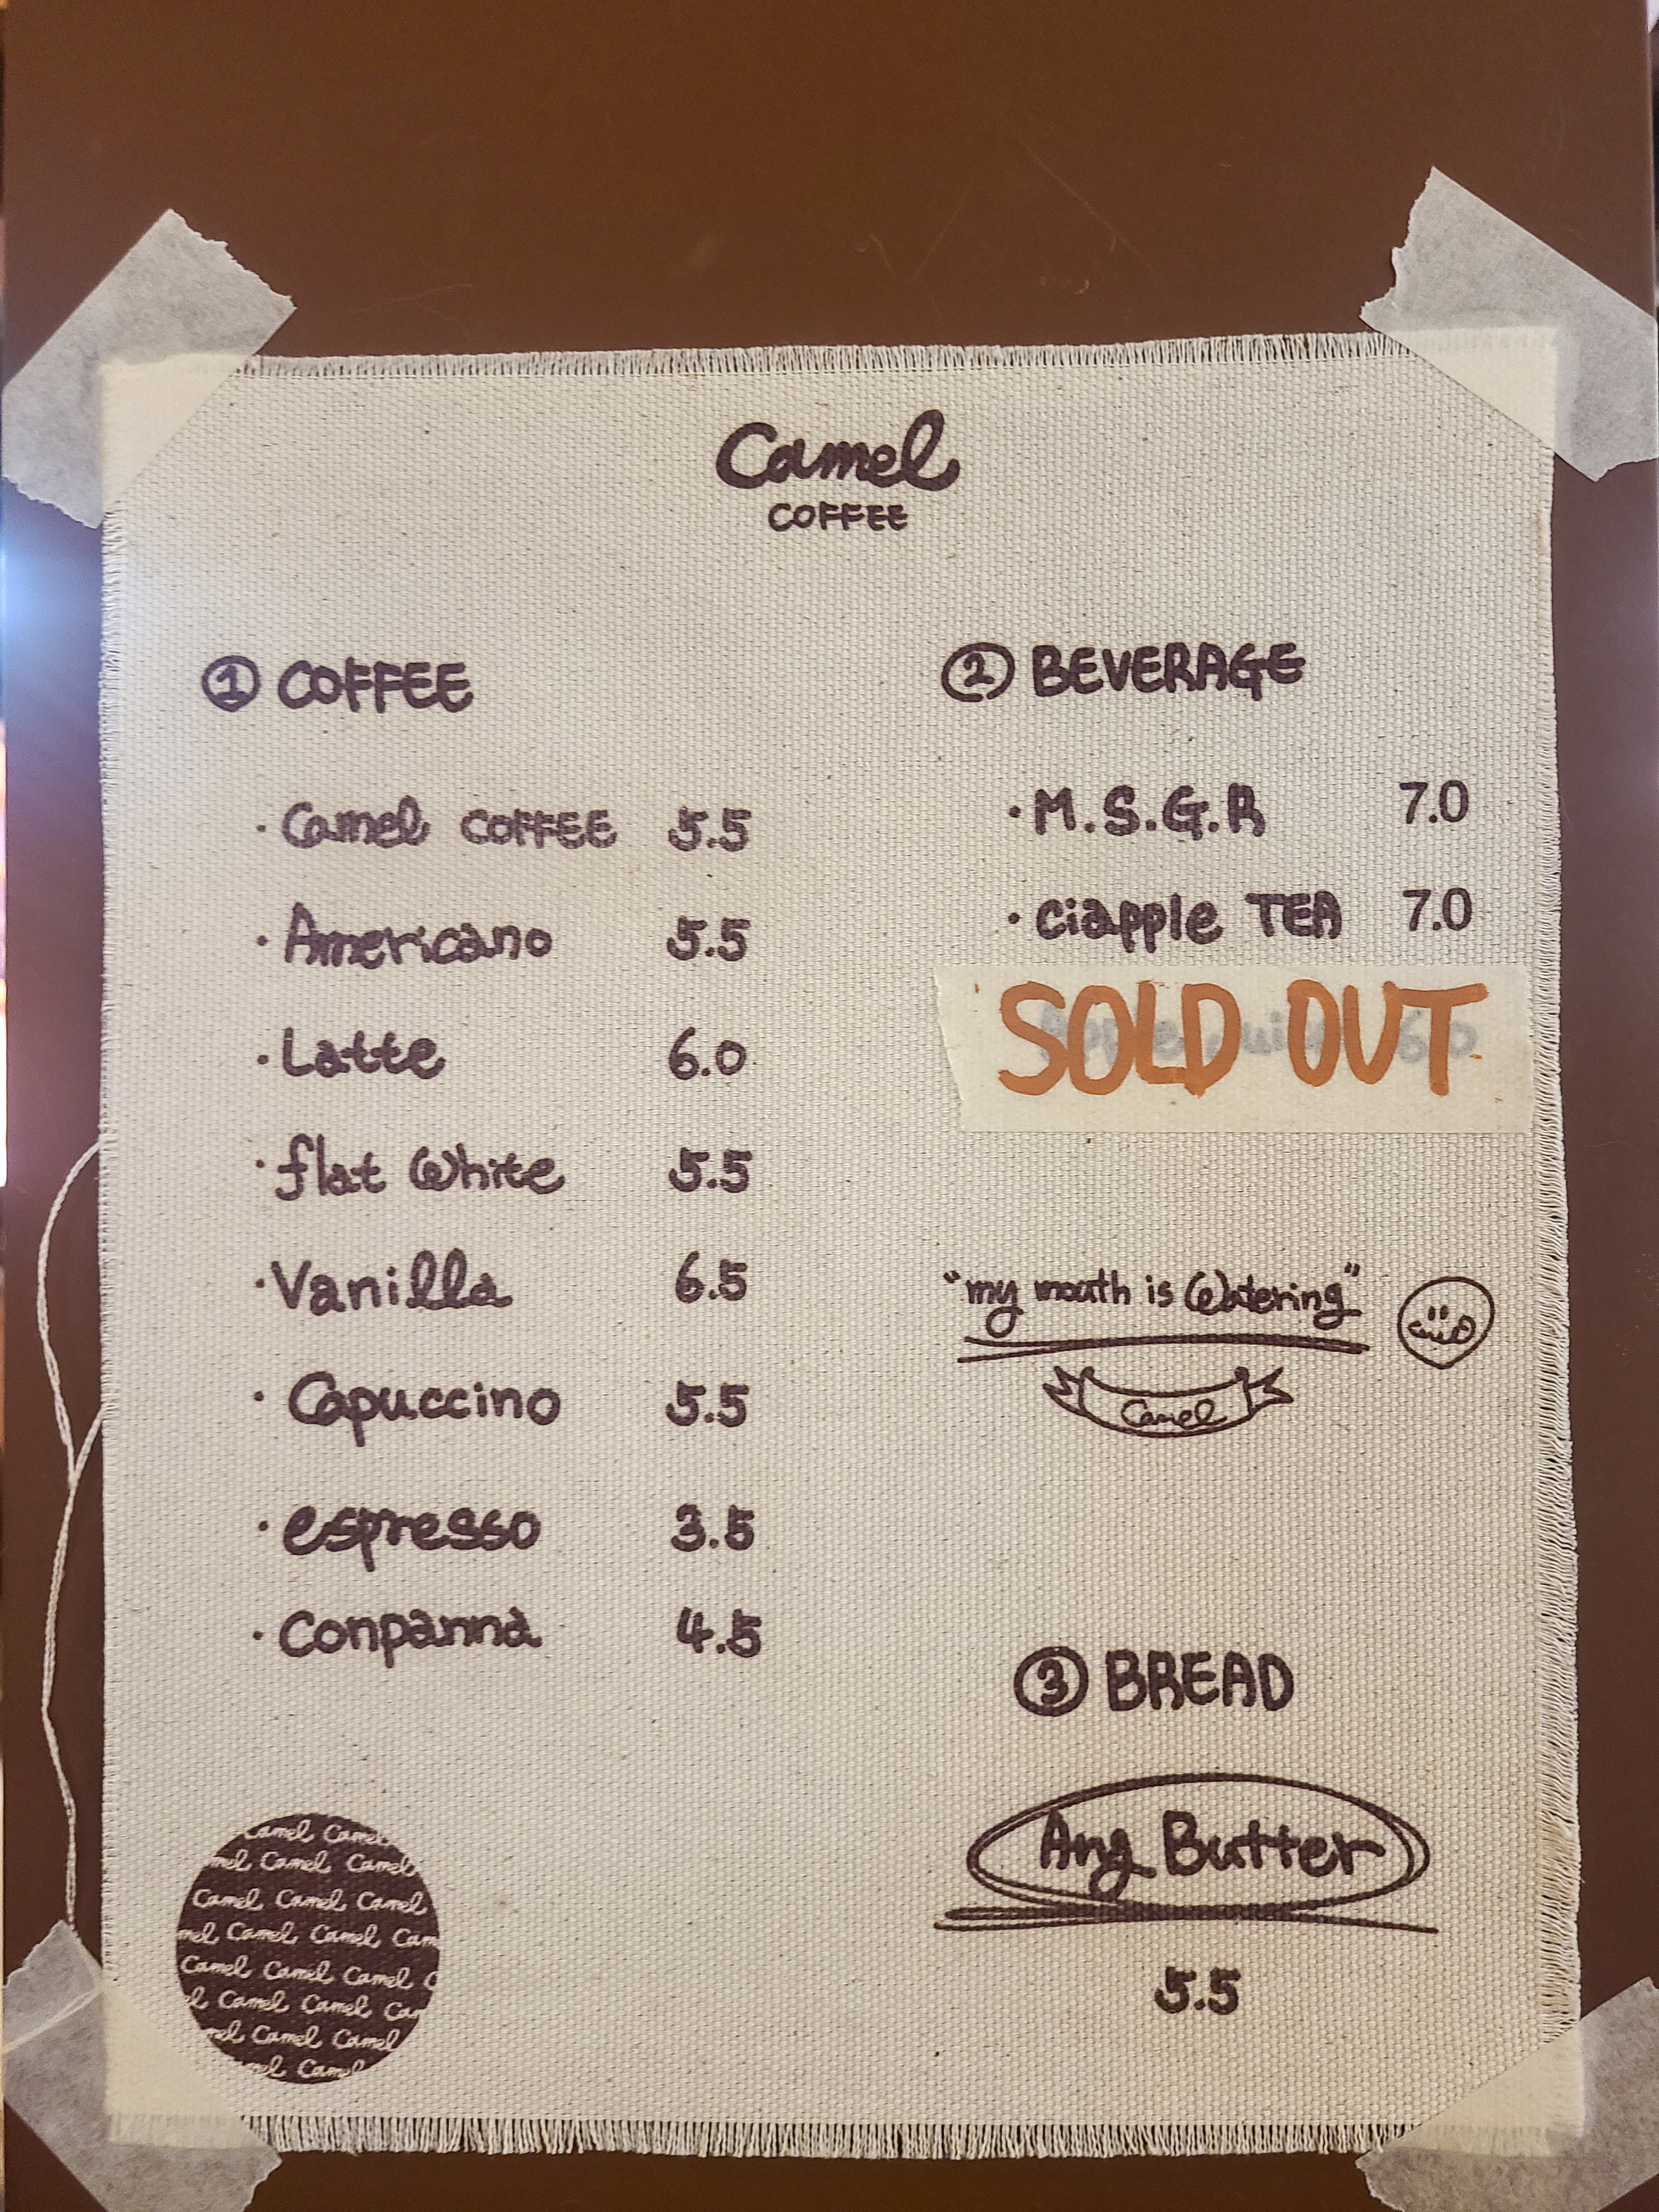 Camel
COFFEE
① COFFEE
· Camel COFFEE 5.5
· Americano 5.5
· Latte 6.0
· flat White 5.5
· Vanilla 6.5
· Capuccino 5.5
· espresso 3.5
· Conpanna 4.5
② BEVERAGE
· M.S.G.R 7.0
· ciapple TEA 7.0
SOLD OUT
6.0
"my mouth is Watering"
Camel
Camel
③ BREAD
Ang Butter
5.5
Camel Camel
mel Camel Camel
Camel Camel Camel
mel Camel Camel Cam
Camel Camel Camel C
el Camel Camel Cam
mel Camel Camel
mel Camel